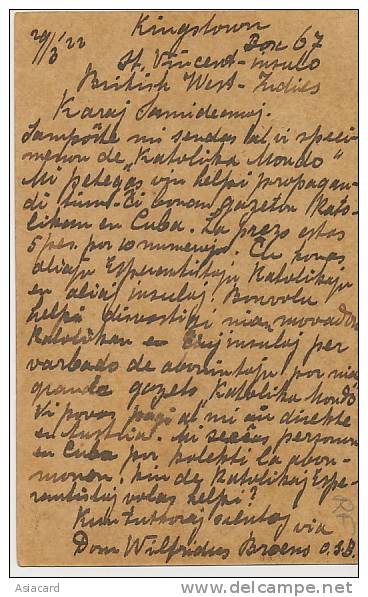 29/3 22 Kingstown
Box 67
St. Vincent-insulo
British West-Indies
Karaj Samideanoj.
Sampoŝte mi sendas al vi speci-
menon de „Katolika Mondo"
Mi petegas vin helpi propagan-
di tiun-ĉi bonan gazeton Kato-
likan en Cuba. La prezo estas
5 pes. por 10 numeroj. Ĉu konas
aliajn Esperantistojn Katolikajn
en aliaj insuloj. Bonvolu
helpi disvastigi nian movadon
Katolikan en ĉiuj insuloj per
varbado de abonintojn por nia
grande gazeto „Katolika Mondo"
Vi povas pagi al mi aŭ direkte
en Austria. Mi serĉas personon
en Cuba por kolekti la abon-
monon. Kiu de Katolikaj Espe-
rantistoj volas helpi?
Kun fratoraj salutoj
via
Dom Wilfridus Broens O.S.B.
RF
Asiacard
delcampe.net